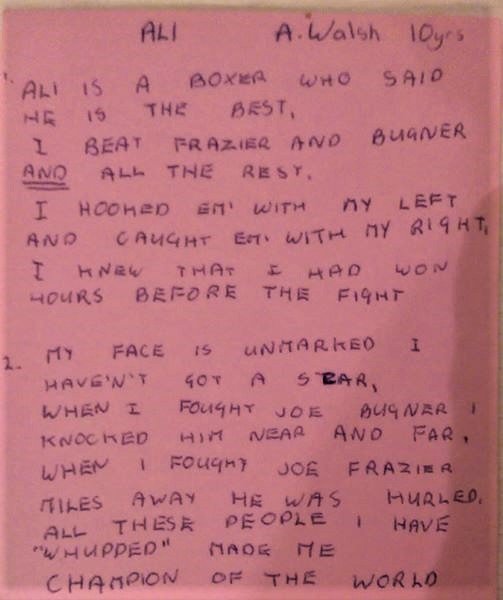 ALI A. Walsh 10yrs
1. ALI IS A BOXER WHO SAID
HE IS THE BEST,
I BEAT FRAZIER AND BUGNER
AND ALL THE REST.
I HOOKED EM' WITH MY LEFT
AND CAUGHT EM' WITH MY RIGHT,
I KNEW THAT I HAD WON
HOURS BEFORE THE FIGHT
2. MY FACE IS UNMARKED I
HAVE'N'T GOT A SCAR,
WHEN I FOUGHT JOE BUGNER I
KNOCKED HIM NEAR AND FAR,
WHEN I FOUGHT JOE FRAZIER
MILES AWAY HE WAS HURLED.
ALL THESE PEOPLE I HAVE
"WHUPPED" MADE ME
CHAMPION OF THE WORLD